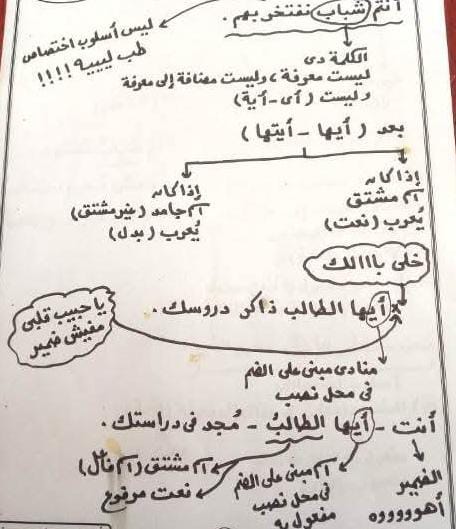 أنتم شباب نفتخر بهم.
ليس أسلوب اختصاص
طب ليييه؟!!!!
الكلمة دى
ليست معرفة، وليست مضافة إلى معرفة
وليست (أى - أية)
بعد (أيها - أيتها)
إذا كان
اسم مشتق
يُعرب (نعت)
إذا كان
اسم جامد (غير مشتق)
يُعرب (بدل)
خلى باااالك
* أيها الطالب ذاكر دروسك.
يا حبيب قلبى
مفيش ضمير
منادى مبنى على الضم
فى محل نصب
أنت - أيها الطالبُ - مُجد فى دراستك.
الضمير
أهوووووه
اسم مبنى على الضم
فى محل نصب
مفعول به
اسم مشتق (اسم فاعل)
نعت مرفوع